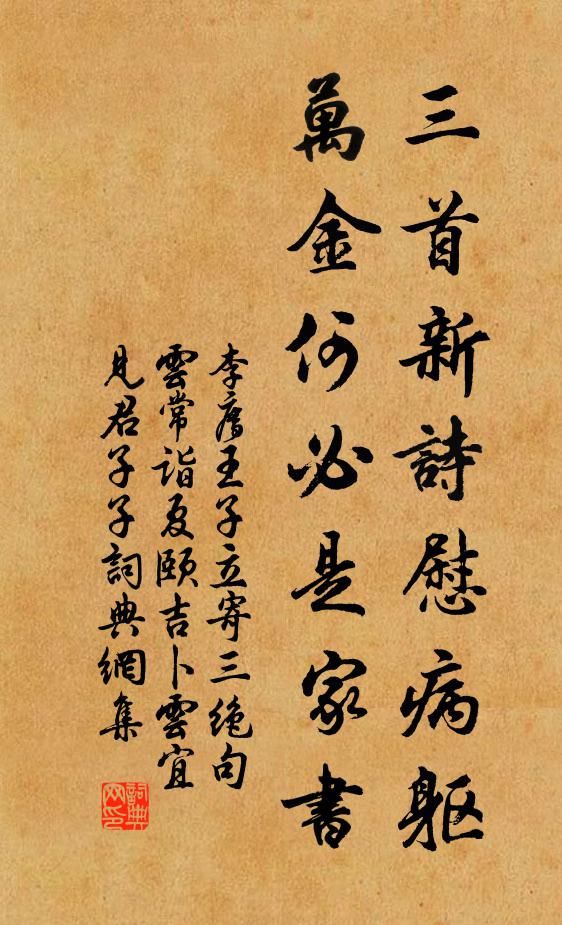 三首新詩慰病軀
萬金何必是家書
李廌王子立寄三絶句
雲常詣夏頤吉卜雲宜
見君子子詞典網集
詞典
网印